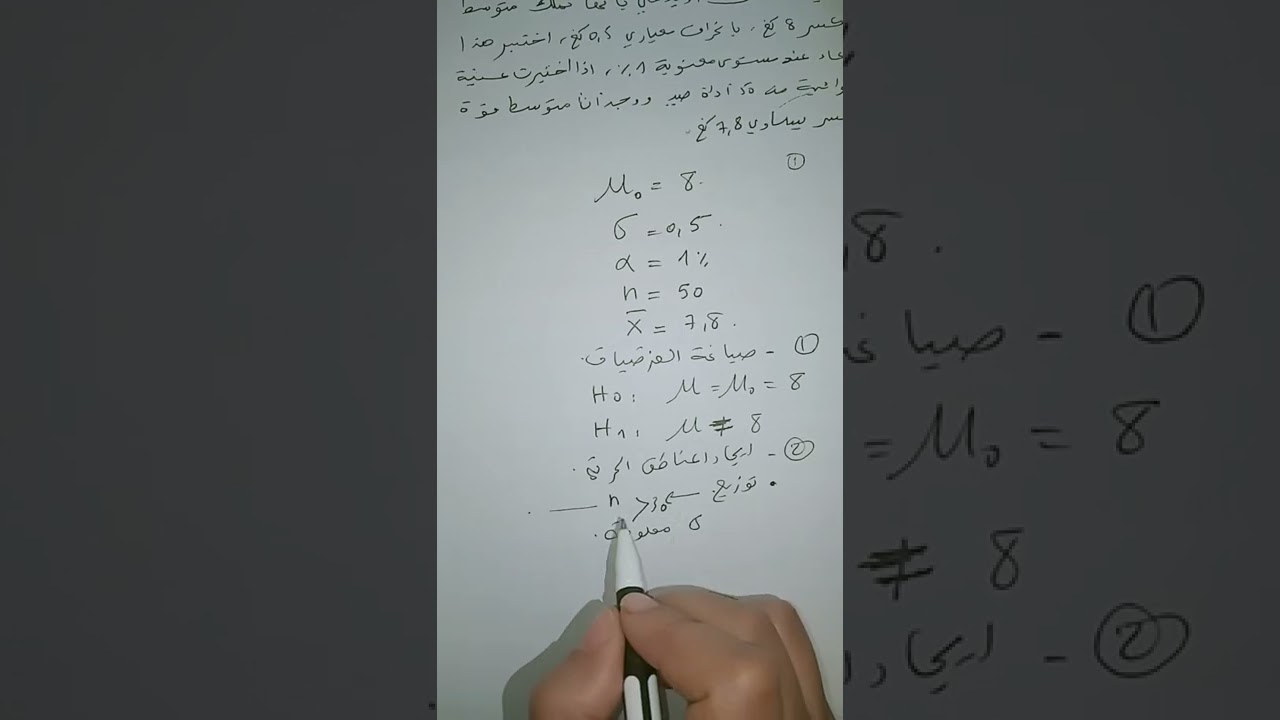 متوسط
كسر 8 كغ، بانحراف معياري 0,5 كغ، اختبر هذا
عاء عند مستوى معنوية 1٪، اذا اختيرت عينية
من 50 أداة صيد ووجد أن متوسط قوة
كسر يساوي 7,8 كغ.
①
μ₀ = 8.
σ = 0,5.
α = 1%
n = 50
X̅ = 7,8.
① - صياغة الفرضيات.
H₀: μ = μ₀ = 8
H₁: μ ≠ 8
② - ايجاد المناطق الحرجة.
• توزيع n > 30
σ معلومة.